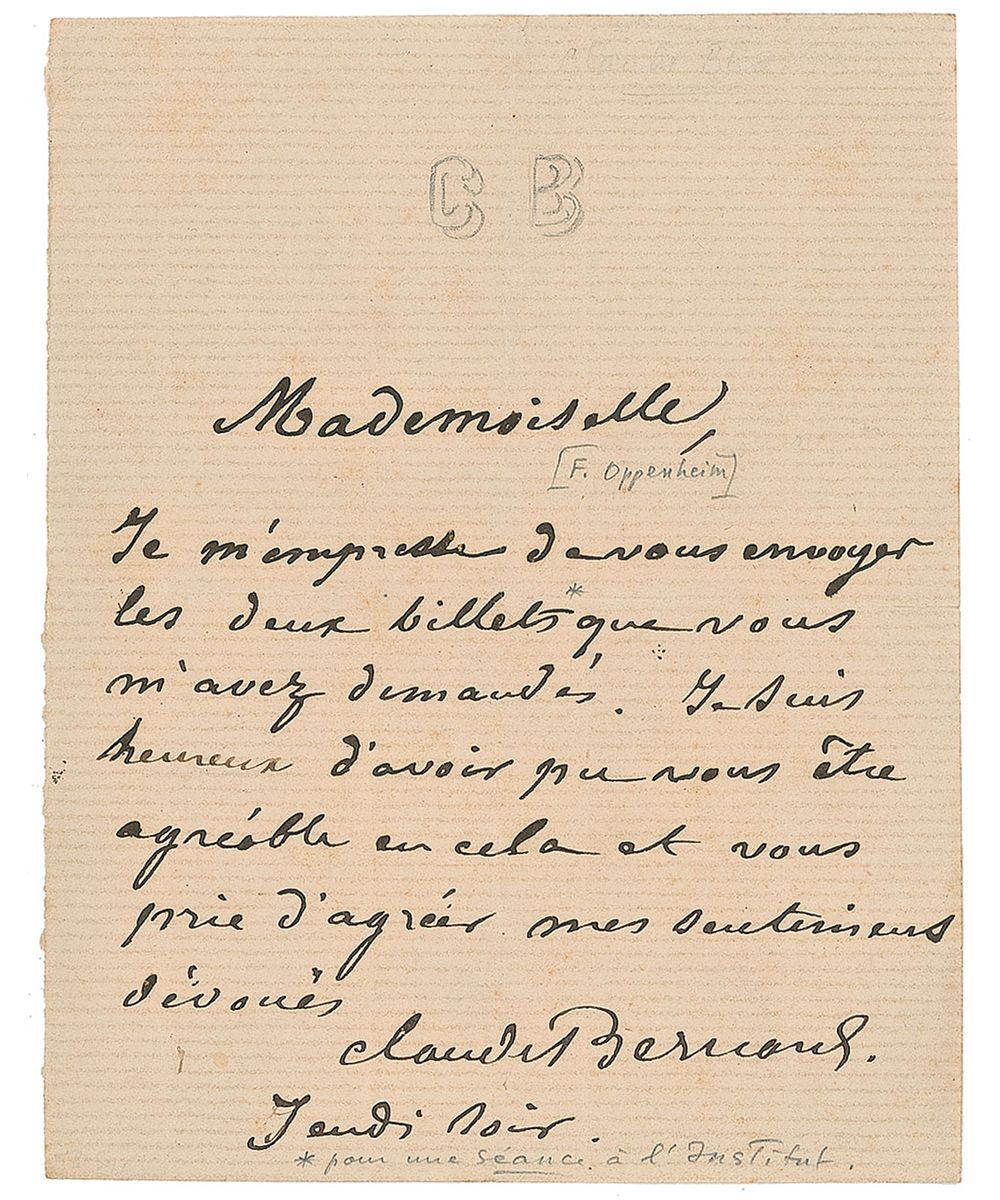 C B
Mademoiselle,
[F. Oppenheim]
Je m'empresse de vous envoyer
les deux billets* que vous
m'avez demandés. Je suis
heureux d'avoir pu vous être
agréable en cela et vous
prie d'agréer mes sentimens
dévoués
Claude Bernard.
Jeudi soir.
* pour une séance à l'Institut.